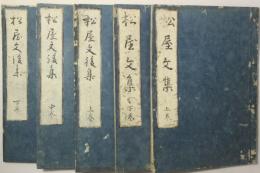 松屋文集 上巻
松屋文集 下巻
松屋文後集 上巻
松屋文後集 中巻
松屋文後集 下巻